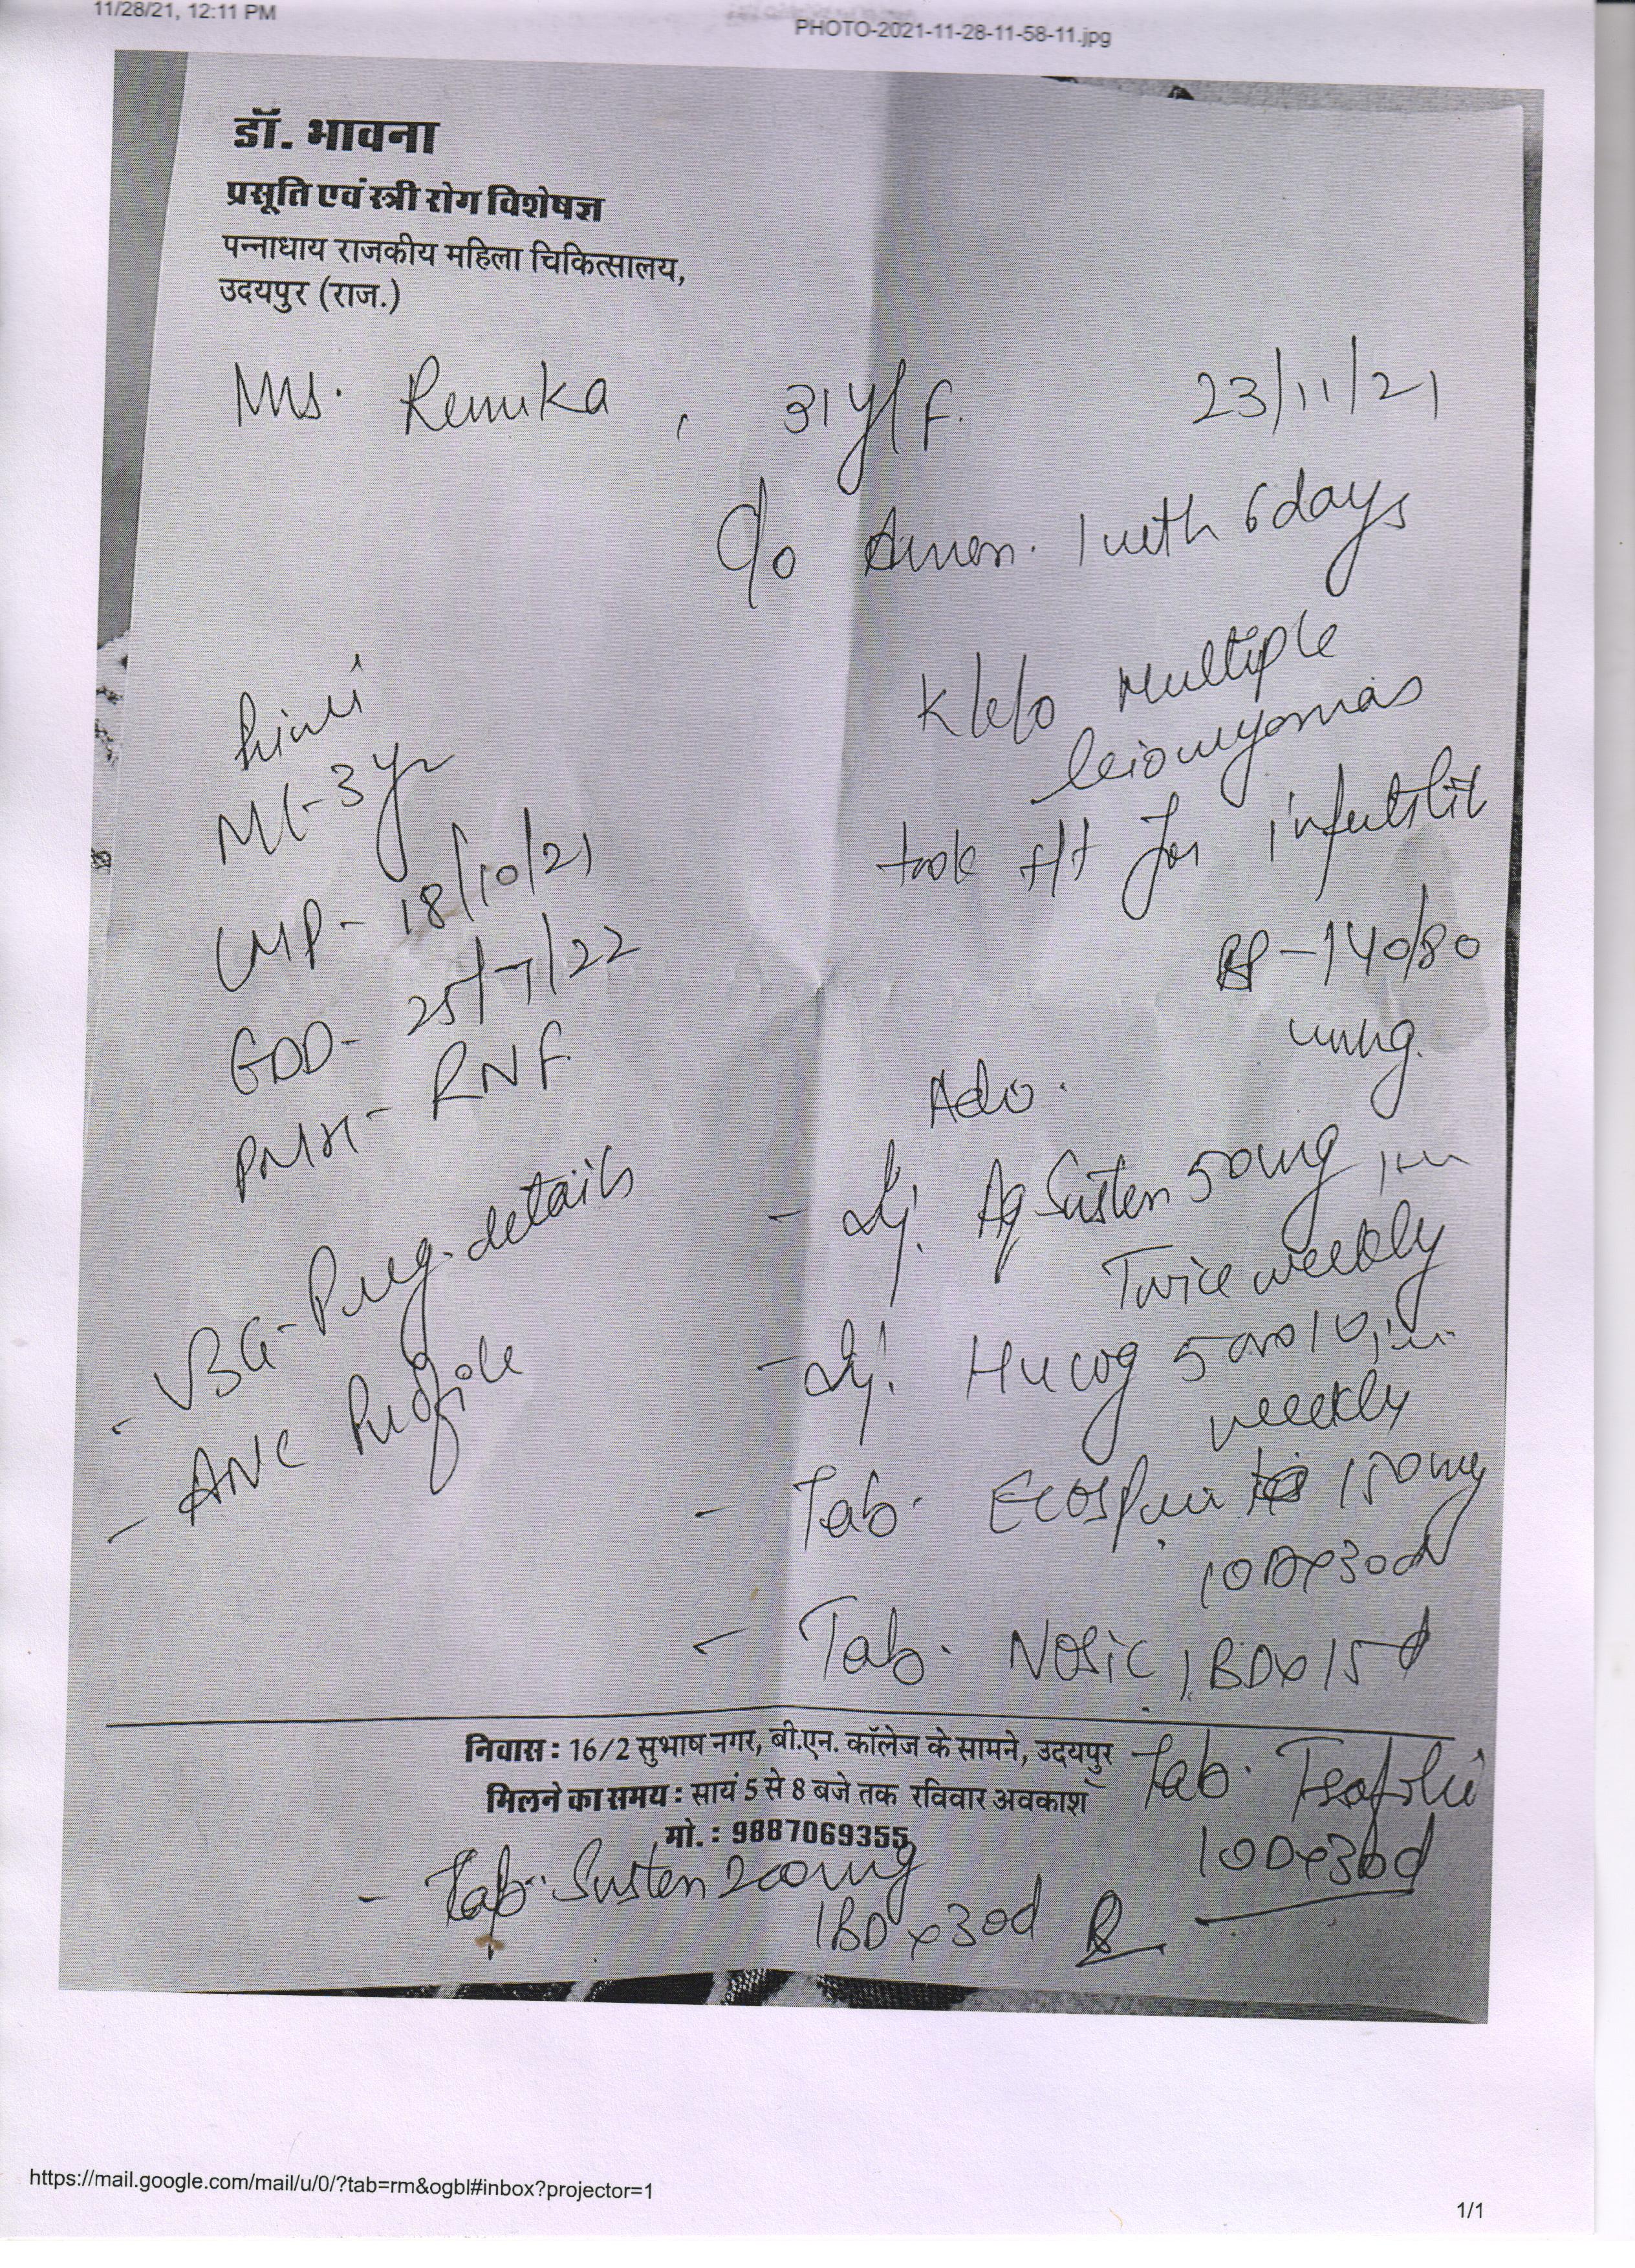 11/28/21, 12:11 PM
PHOTO-2021-11-28-11-58-11.jpg
डॉ. भावना
प्रसूति एवं स्त्री रोग विशेषज्ञ
पन्नाधाय राजकीय महिला चिकित्सालय,
उदयपुर (राज.)
Mrs. Renuka, 31y/F. 23/11/21
c/o Amen. 1 mth 6 days
K/c/o Multiple
leiomyomas
took t/t for infertilit
Primi
ML-3yr
LMP- 18/10/21
EDD- 25/7/22
PMH- RNF
BP-140/80
mmHg.
- USG-Preg. details
- ANC Profile
Adv.
- Inj. Aq Susten 50mg im
Twice weekly
- Inj. Hucog 5000 IU, im
weekly
- Tab. Ecosprin 150mg
1ODx30d
- Tab. Nosic 1BDx15d
निवास : 16/2 सुभाष नगर, बी.एन. कॉलेज के सामने, उदयपुर
मिलने का समय : सायं 5 से 8 बजे तक रविवार अवकाश
मो. : 9887069355
Tab.
1ODx30d
- Tab. Susten 200mg
1BDx30d
https://mail.google.com/mail/u/0/?tab=rm&ogbl#inbox?projector=1
1/1